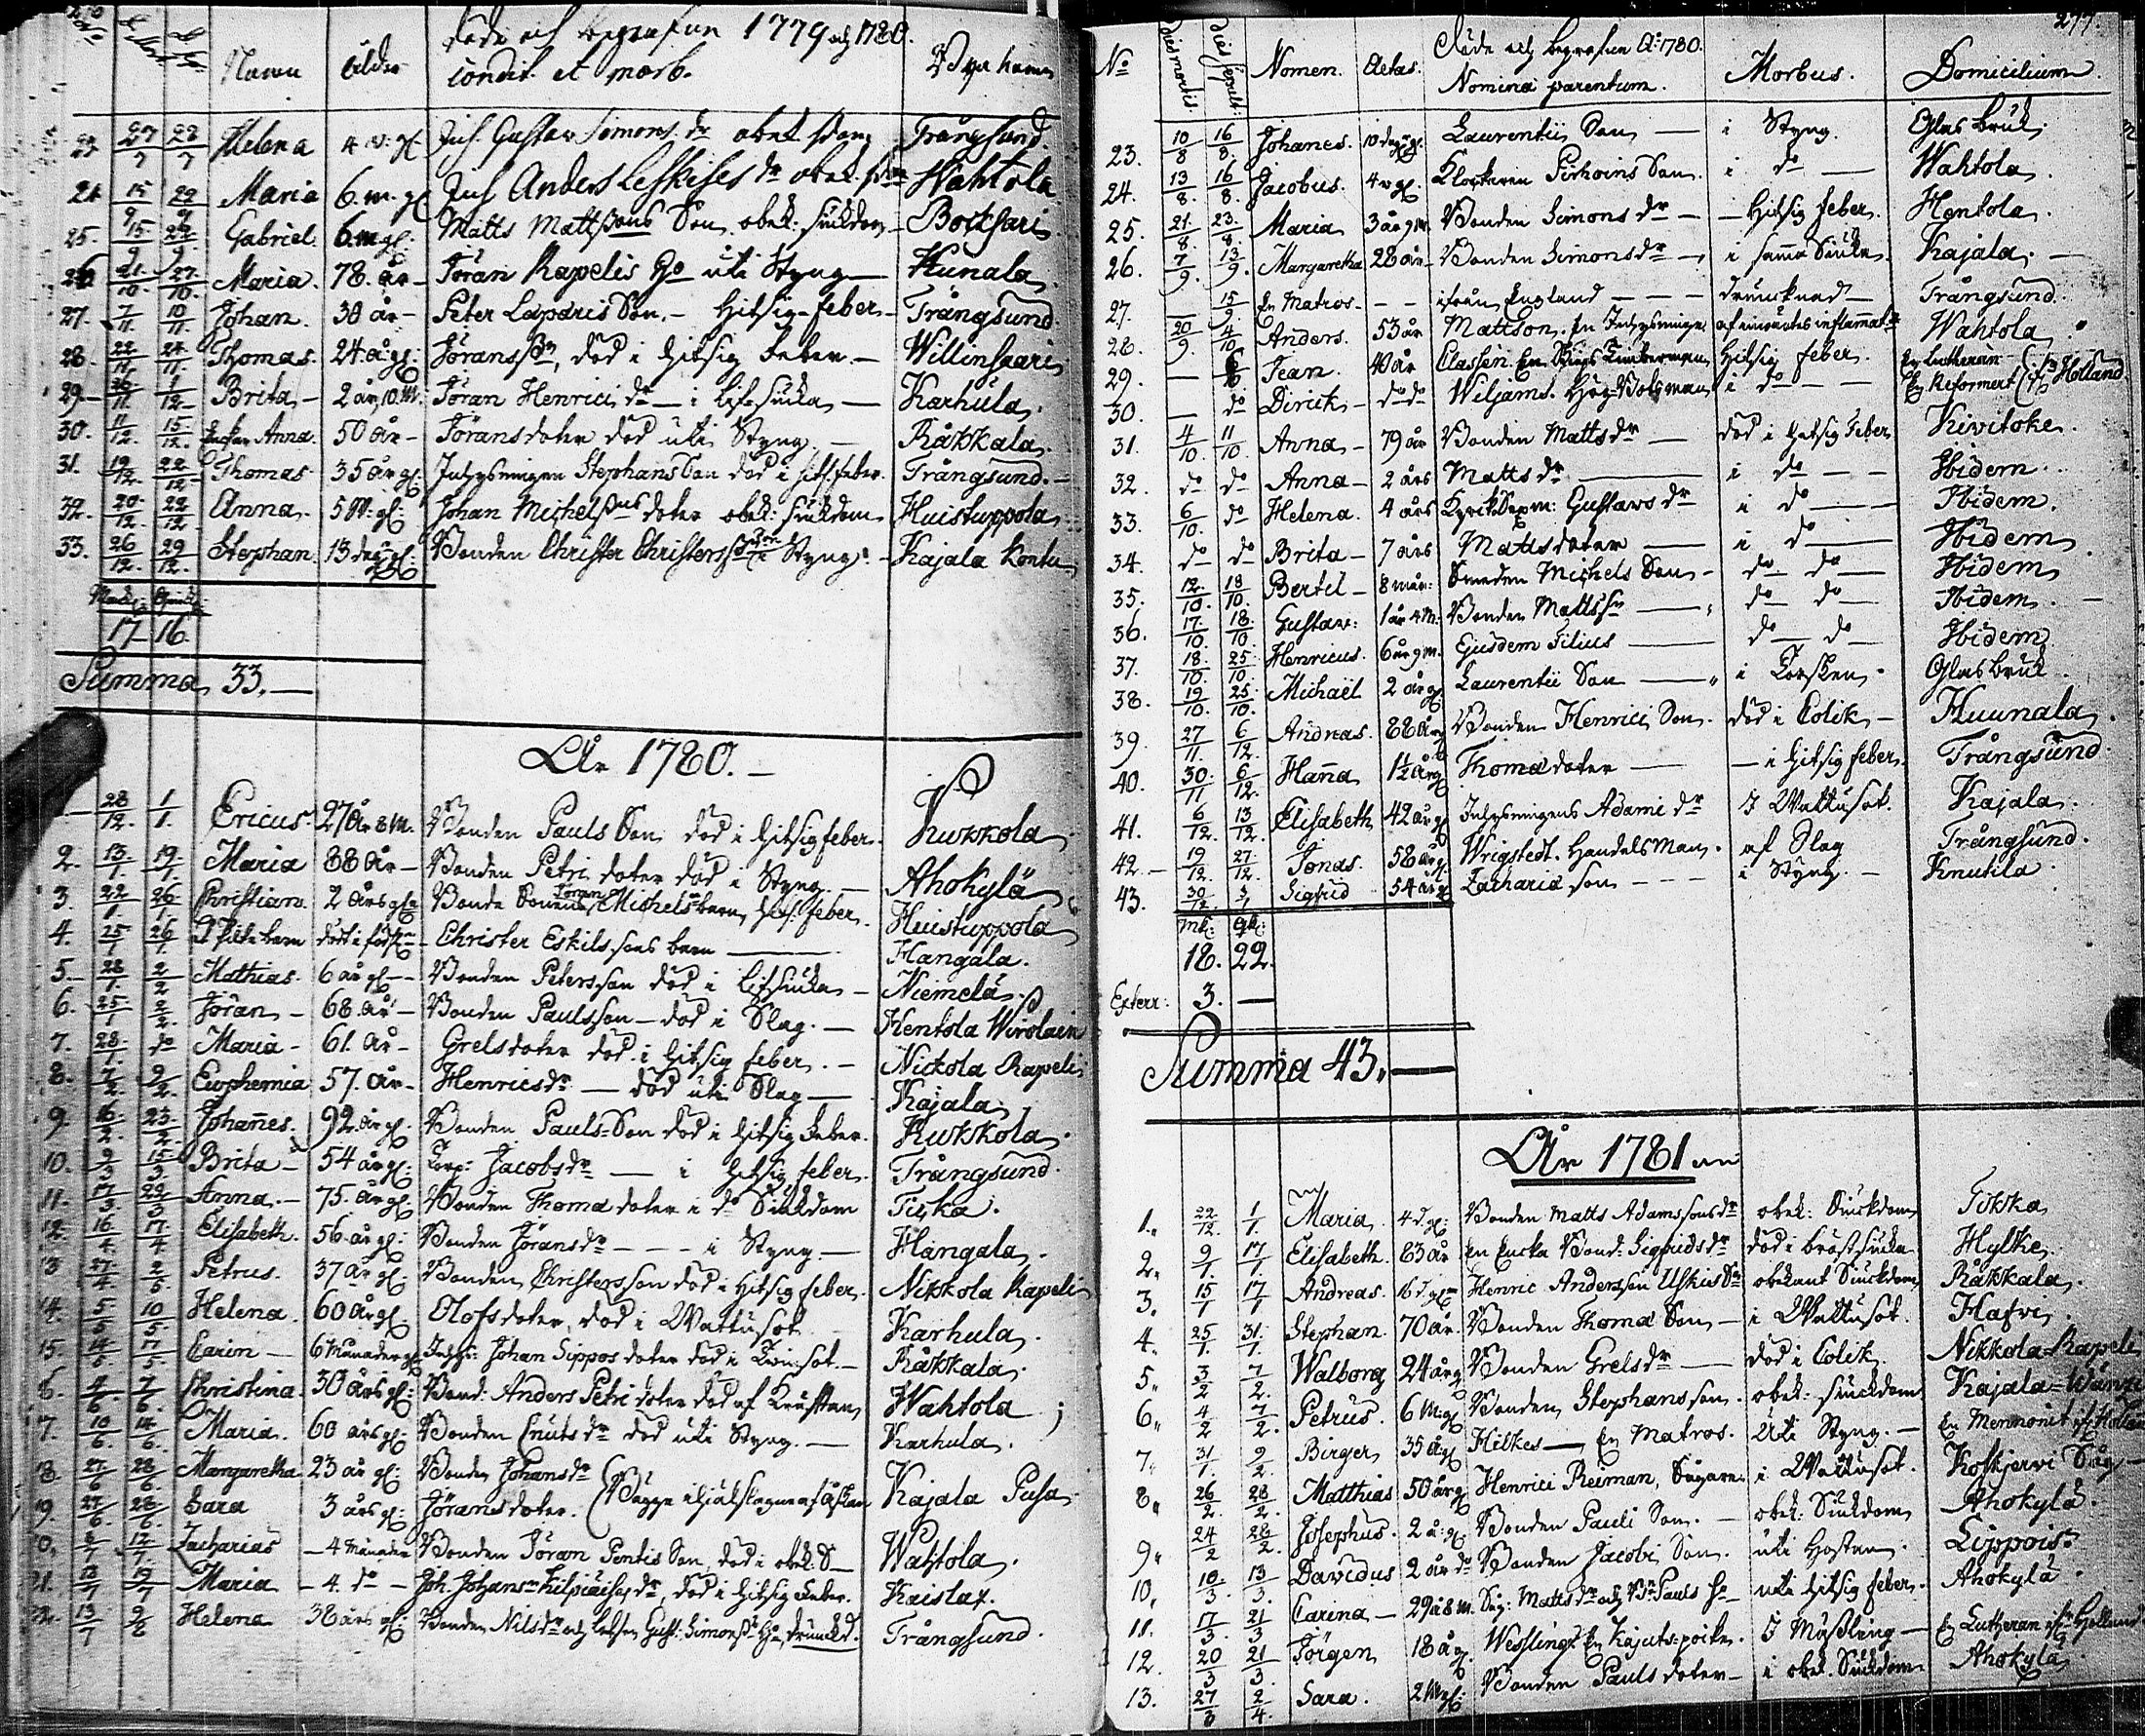 Döde och begrafne 1779 och 1780.
Namn Ålder Condit. et morb. Byar namn
23. 27/7 22/7 Helena 4 v: gl. Inh. Gustav Simons dr obek. Trångsund.
24 15/9 22/9 Maria 6. m. gl Inh Anders Leskises dr obek. Wahtola
25. 15/9 22/9 Gabriel. 6. m gl: Matts Mattssons Son obek: siukdom Bocksari.
26 21./10. 27./10. Maria. 78. år Jöran Rapelis uti Styng Kunala
27. 7/11. 10/11. Johan. 38 år Peter Laparis Son. Hitsig-feber Trångsund.
28. 22/11. 24/11. Thomas. 24 å: gl: Jöransson, död i hitsig Feber. Willinsaari
29 30/11. 1/12 Brita 2 år, 10. M: Jöran Henrici dr Karhula.
30. 11/12. 15./12. Enkan Anna. 50 år Jöransdoter död uti Styng. Råkkala
31. 19/12. 22/12 Thomas 35 år gl: Inhysningen Stephans Son död i hits. feber. Trångsund.
32. 20/12. 22/12 Anna. 5 M: gl: Johan Michelssons doter obek: siukdom Huistuppola
33. 26/12. 29/12. Stephan. 13 dag: gl: Bonden Christer Christerss Son i Styng: Kajala Kontu
Mank: Qvink:
17 16
Summa 33.
År 1780.
1. 28/12. 1/1. Ericus 27 År 8 M. Bonden Pauls Son död i hitsig feber. Kukkola
2. 13/1. 19/1. Maria 88 År Bonden Petri doter död i Styng. Ahokylä
3. 22/1. 26/1. Christian. 2 års gl: Bonde Sonens Jöran Michels barn, hits. feber. Huistuppola
4. 25/1 26/1. Christer Eskils sons barn Hangala.
5. 28/1. 2/2 Mathias. 6 år gl: Bonden Petersson död i Niemelä.
6. 25/1 2/2. Jöran 68. år Bonden Paulsson död i Slag. Kentola Wirolain
7. 28./1. do Maria 61. År Grelsdoter död i hitsig feber. Nickola Rapeli
8. 7/2. 9/2. Euphemia 57. År Henricsdr död uti Slag Kajala
9. 16/2. 23./2. Johannes. 92. år gl. Bonden Pauls Son död i hitsig Feber. Kukkola.
10. 9/3 15/3. Brita 54 år gl: Torp: Jacobs dr i hitsig feber. Trångsund.
11. 17/3. 22/3 Anna. 75. år gl: Bonden Thomæ doter i do Siukdom Tiska.
12. 16/4 17./4 Elisabeth. 56. år gl: Bonden Jörans dr i Styng Hangala.
13 27./4 2/5. Petrus. 37 år gl: Bonden Christersson död i hitsig feber. Nikkola Rapeli
14. 5./5 10/5 Helena. 60 år gl. Olofsdoter, död i Wattusot Karhula.
15. 14/5 17/5. Carin 6 Månader gl. Inhys: Johan Sippos doter död i Twinsot. Råkkala.
16. 4/6. 7/6. Christina. 30 års gl: Bond: Anders Petri doter död af Wahtola
17. 10/6. 14/6. Maria. 60 års gl: Bonden Cnuts dr död uti Styng. Karhula.
18. 27/6 28/6. Margaretha. 23 år gl: Bonden Johans dr (Bägge ihjälslagne af åskan Kajala Pusa.
19. 27/6. 28/6. Sara 3 års gl: Jörans doter.
20. 2/7 12/7. Zacharias 4 Månader Bonden Jöran Pentis Son, död i obek: S Wahtola.
21. 12/7 19/7 Maria 4. do Joh. Johans Kilpiäises dr, död i hitsig Feber. Kaislax.
22. 13/7 2/8 Helena 38 års gl: Bonden Nils dr och Gust: Simons drunckd. Trångsund.
277.
Döde och begrafne Ao: 1780.
No dies mortis. dies sepult: Nomen. Aetas. Nomina parentum. Morbus. Domicilium.
23. 10/8 16/8. Johanes. 10 dagr gl. Laurentii Son i Styng. Glasbruk
24. 13/8. 16/8. Jacobus. 4 v gl. Klockaren Pirhoins Son. i do Wahtola.
25. 21./8. 23./8 Maria 3 år 9 M. Bonden Simons dr Hitsig feber. Hentola.
26. 7/9. 13/9. Margaretha 28 år Bonden Simons dr i samma Siuka. Kajala.
27. 15/9. En Matros ifrån England drunknad Trångsund.
28. 20/9. 4/10 Anders. 53 år Mattson. En Inhysninge af inwärtes inflammat: Wahtola
29. Jean. 40 år Classen. En Skieps Timberman Hitsig feber. En Lutheran
30 do Dirick do do Wiljams. Hög-Botsman i do En Reformert ifr Holland
31. 4/10. 11/10. Anna 79 år Bonden Matts dr död i hitsig Feber Kivitoke.
32. do do Anna 2 års Matts dr i do Ibidem.
33. 6/10. do Helena. 4 års Gustavs dr i do Ibidem.
34. do do Brita 7 års Mattsdoter i do Ibidem
35. 12./10. 18/10. Bertil 8 mån: Smeden Michels Son do do Ibidem
36. 17./10. 18./10 Gustav: 1 år 4 M: Bonden Matts Sn do do Ibidem.
37. 18./10. 25./10. Henricus. 6 år 9 m. Ejusdem Filius do do Ibidem
38. 19/10. 25./10. Michaël 2 år gl Laurentii Son i Torsken Glasbruk.
39. 27/11. 6/12. Andreas. 88 År gl Bonden Henrici Son. död i Colik Huunala.
40. 30./11 6/12. Hanna 1½ År gl Thomæ doter i hitsig feber. Trångsund.
41. 6/12. 13/12. Elisabeth 42 år gl Inhysningens Adami dr I Wattusot. Kajala.
42. 19/12. 27./12. Jonas. 58 år gl Wrigstedt. Handelsman. af Slag Trångsund.
43. 30/12. 3/1 Sigfrid 54 år gl Zachariæ son i Styng. Knutila.
Mk: Qk:
18. 22.
Exterr: 3.
Summa 43.
År 1781
1. 22/12. 1/1. Maria. 4 d. gl: Bonden Matts Adamssons dr obek: Siuckdom Tökka
2. 9/1 17/1. Elisabeth. 83 år En Encka Bond: Sigfrids dr död i bröstsiuka Hylke.
3. 15/1 17/1 Andreas. 16 d. gl: Henric Andersson Uskis Sn obekant Siuckdom Råkkala.
4. 25/1 31./1. Stephan. 70 år. Bonden Thomæ Son i Wattusot. Hafvi.
5. 3/2 7/2. Walborg 24 år gl Bonden Grels dr död i Colik. Nikkola Rapeli
6. 4/2 7/2. Petrus. 6 M: gl Bonden Stephansson. obek: siuckdom Kajala
7. 31/1. 9/2. Birger 35 å gl Hilkes En Matros. Uti Styng. En Mennonit ifr Holland
8. 26/2. 28/2. Matthias 50 år gl Henrici Reiman, Sågare i Wattusot. Koskjervi Såg
9. 24/2 28/2. Josephus. 2 å: gl: Bonden Pauli Son. obek: Siukdom Ahokylä.
10. 10./3. 13/3. Davidus 2 år do Bonden Jacobi Son. uti Hostan. Lippois
11. 17/3. 21/3 Carina 29 å 8 M. Såg: Matts dr och Pauls uti hitsig feber. Ahokylä
12. 20/3 21/3. Jörgen 18 år gl. Wesslings En Kajuts-poike. I Mässling En Lutheran ifr Holland
13. 27/3 2/4. Sara. 2 M gl: Bonden Pauls doter i obek. Siukdom Ahokylä